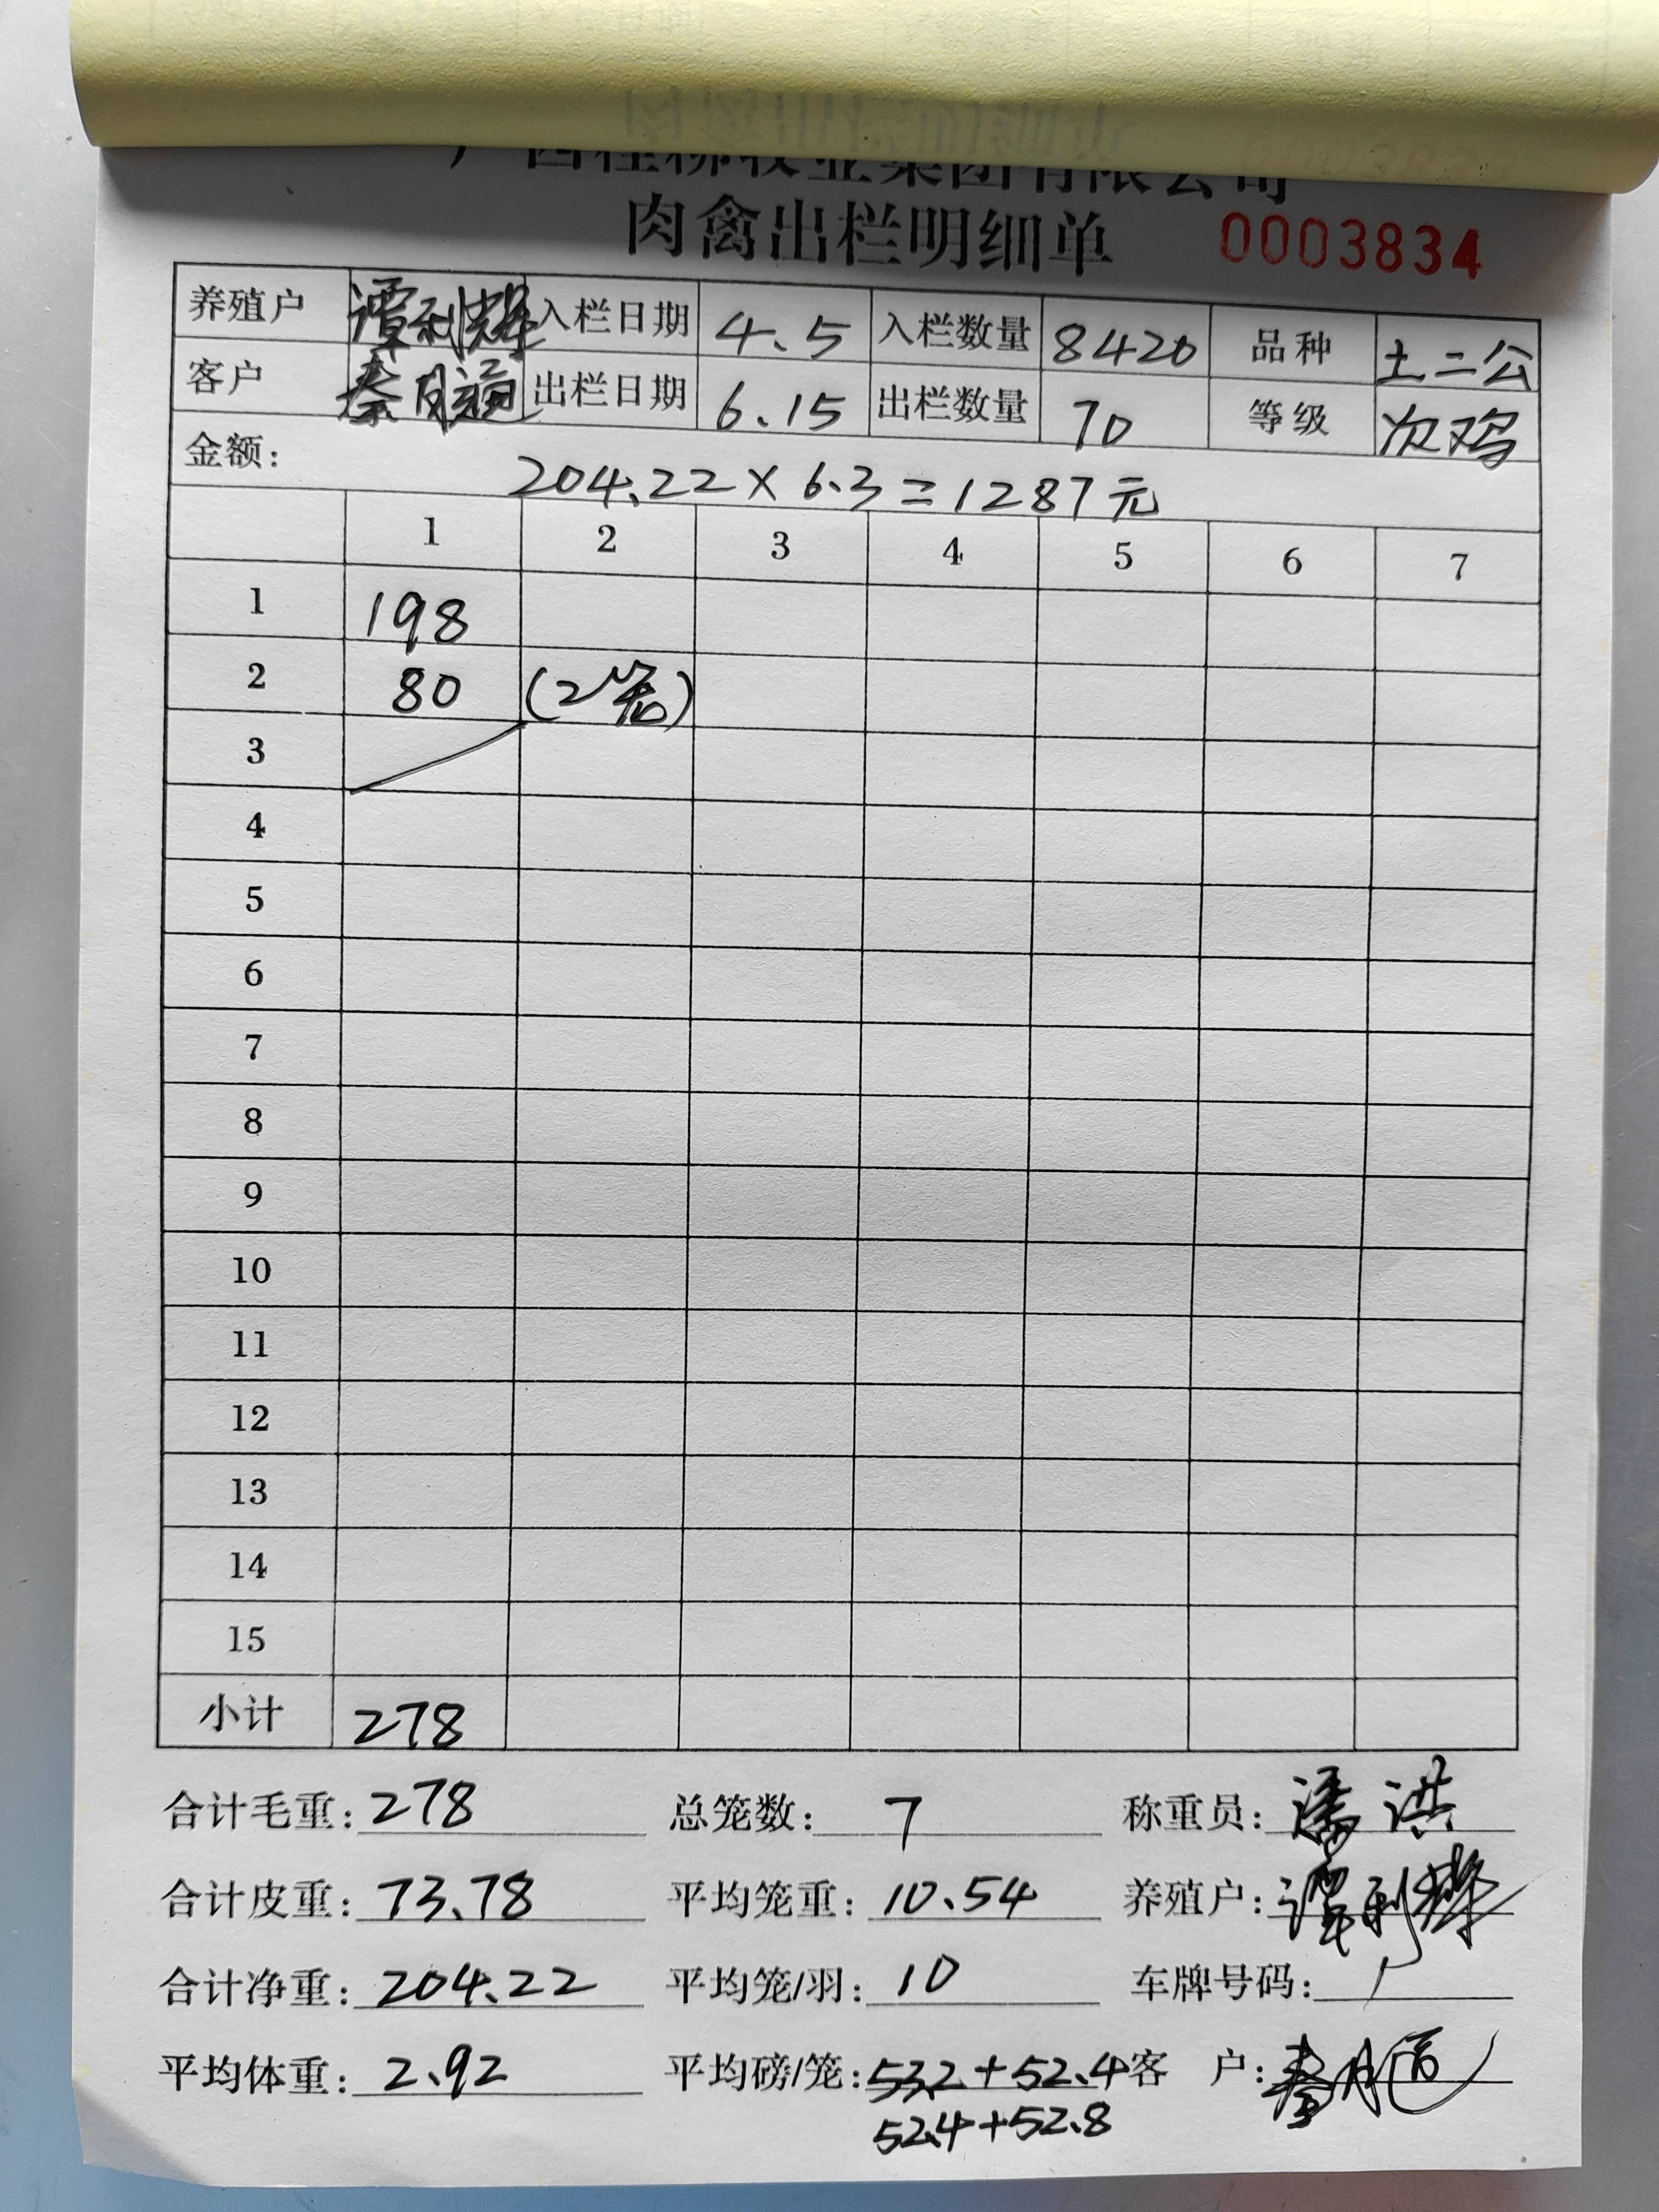 广西桂柳牧业集团有限公司
肉禽出栏明细单 0003834
养殖户 谭利辉 入栏日期 4.5 入栏数量 8420 品种 土二公
客户 秦月 出栏日期 6.15 出栏数量 70 等级 次鸡
金额: 204.22×6.3=1287元
1 2 3 4 5 6 7
1 198
2 80 (2笼)
3
4
5
6
7
8
9
10
11
12
13
14
15
小计 278
合计毛重: 278 总笼数: 7 称重员: 潘洪
合计皮重: 73.78 平均笼重: 10.54 养殖户: 谭利辉
合计净重: 204.22 平均笼/羽: 10 车牌号码: /
平均体重: 2.92 平均磅/笼: 53.2+52.4 客 户: 秦月
52.4+52.8